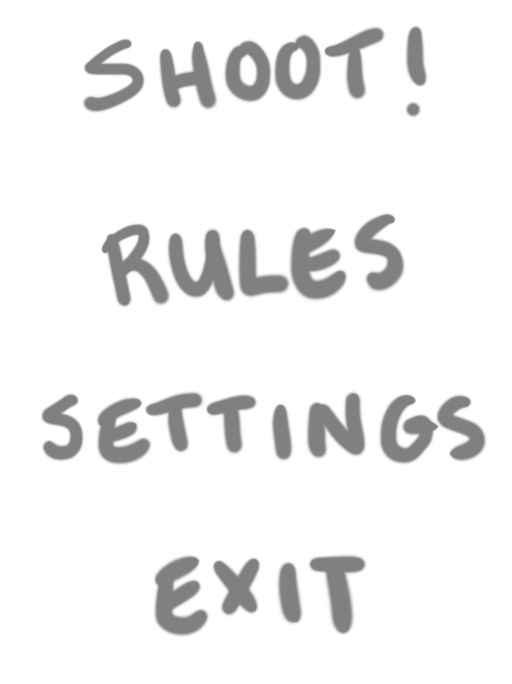 SHOOT!
RULES
SETTINGS
EXIT